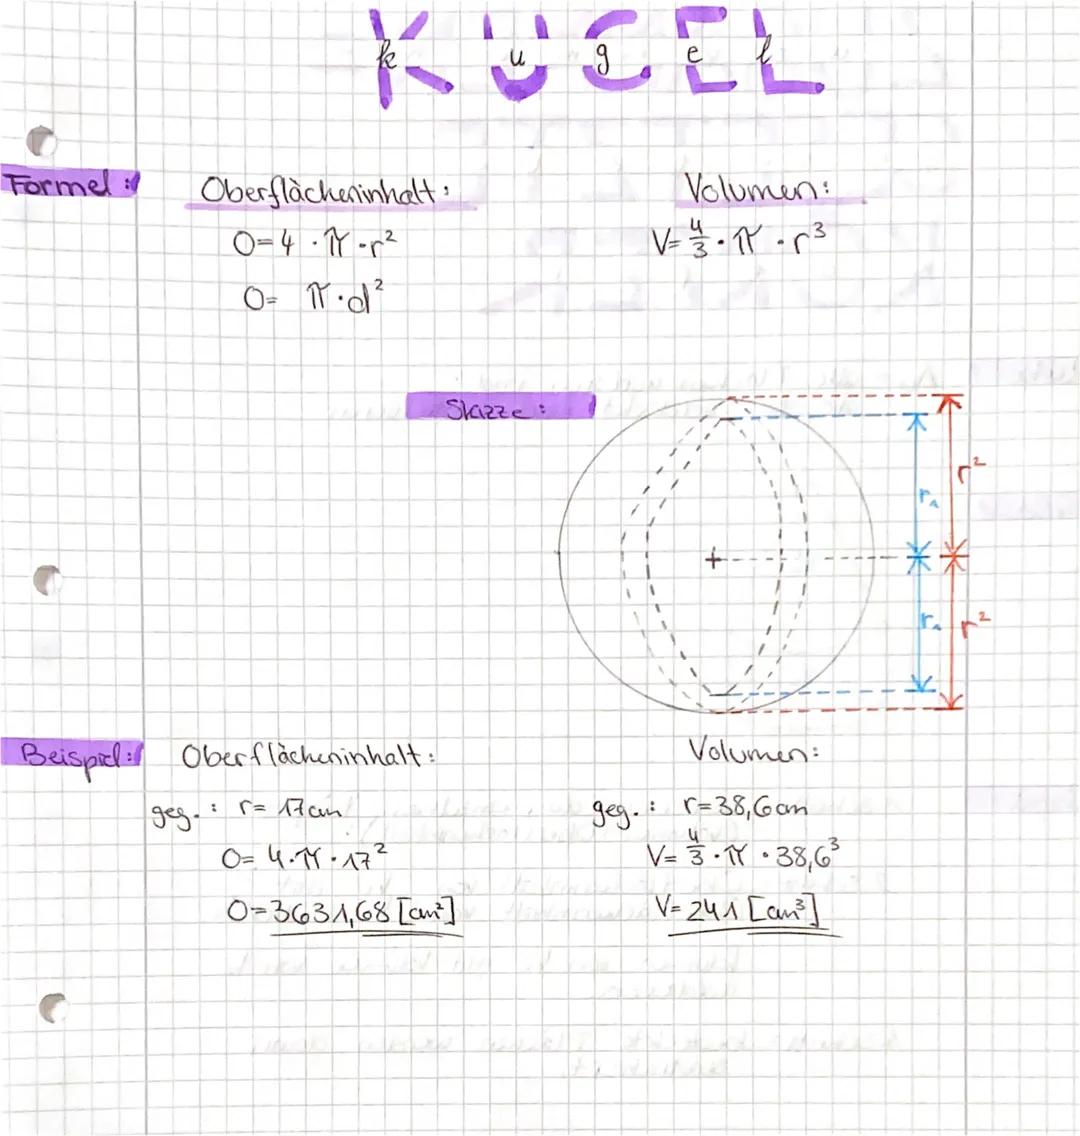 KUGEL
kugel
Formel:
Oberflächeninhalt:
O=4·π·r²
O= π·d²
Volumen:
V=4/3·π·r³
Skizze:
r₁
r²
r₁
r²
Beispiel:
Oberflächeninhalt:
geg.: r= 17cm
O= 4·π·17²
O=3631,68 [cm²]
Volumen:
geg.: r=38,6cm
V= 4/3·π·38,6³
V= 241 [cm³]